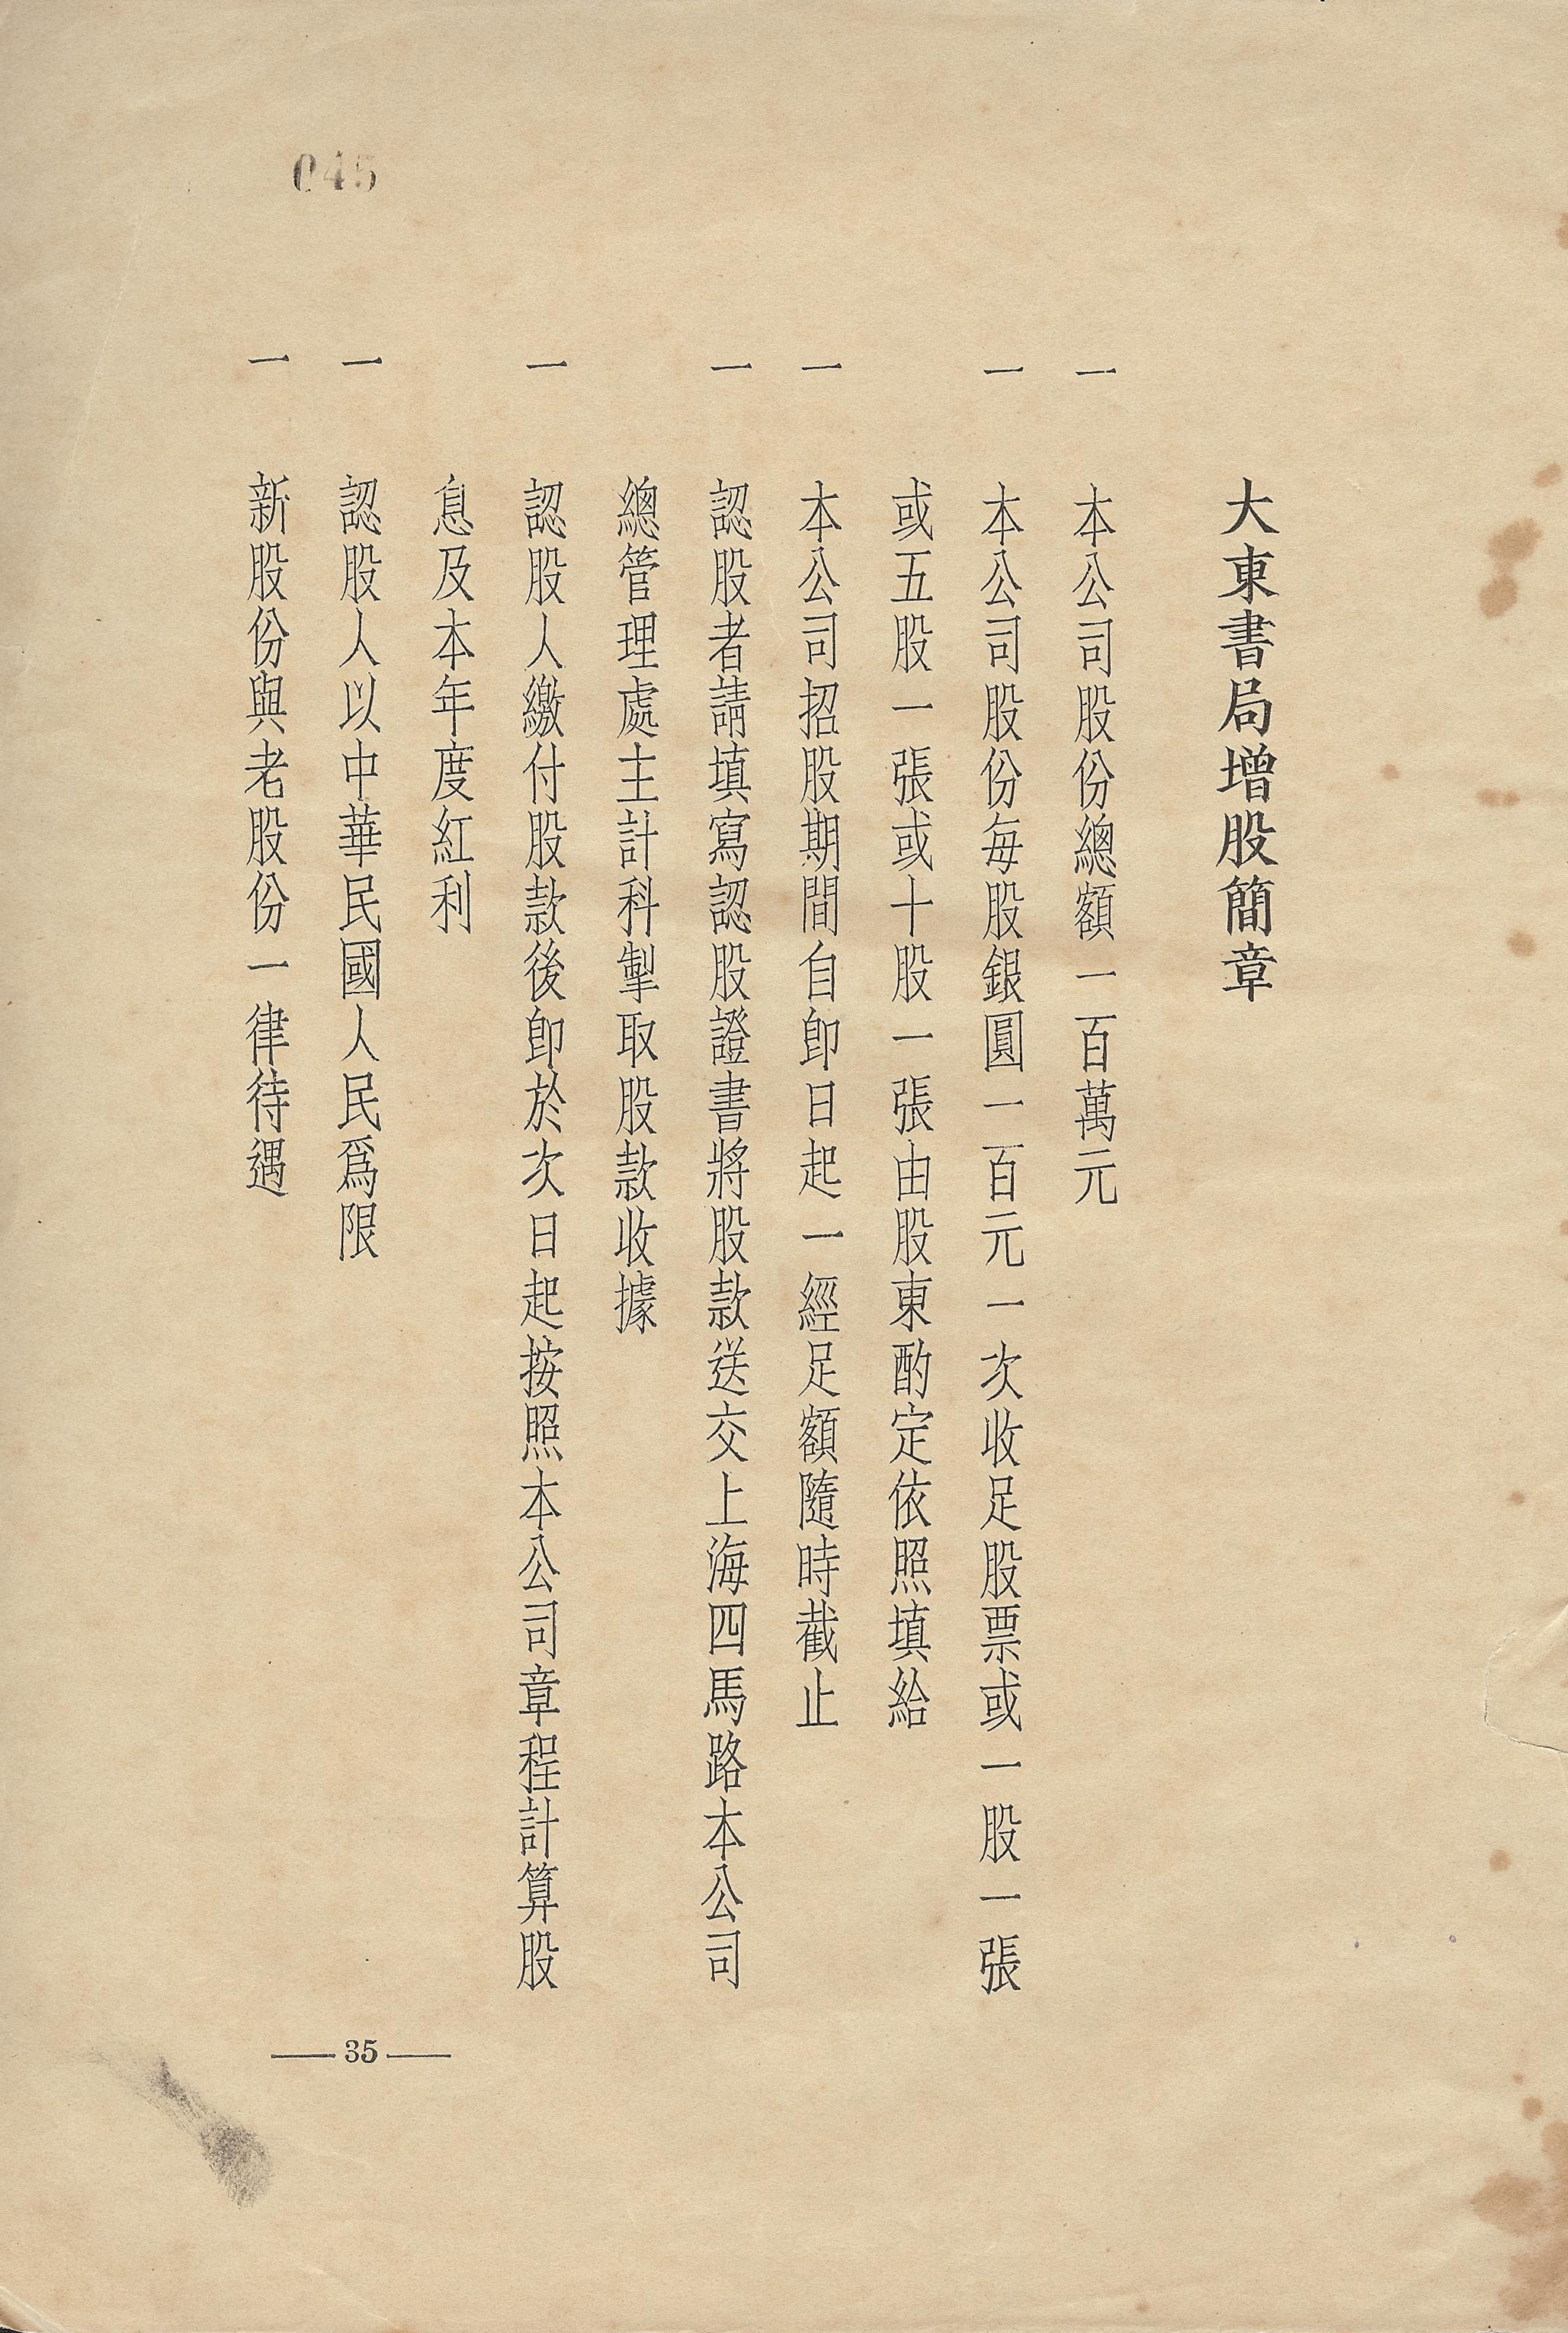 045
大東書局增股簡章
一 本公司股份總額一百萬元
一 本公司股份每股銀圓一百元一次收足股票或一股一張
或五股一張或十股一張由股東酌定依照填給
一 本公司招股期間自卽日起一經足額隨時截止
一 認股者請填寫認股證書將股款送交上海四馬路本公司
總管理處主計科掣取股款收據
一 認股人繳付股款後卽於次日起按照本公司章程計算股
息及本年度紅利
一 認股人以中華民國人民爲限
一 新股份與老股份一律待遇
35